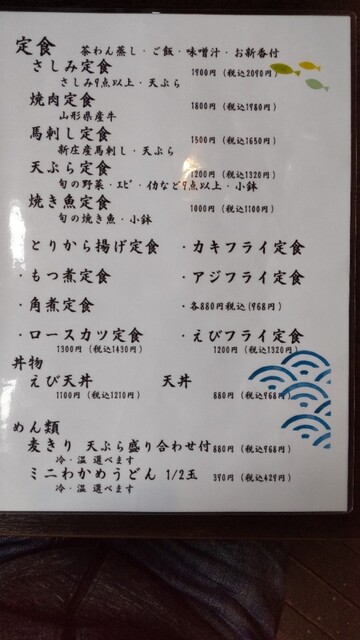 定食 茶わん蒸し・ご飯・味噌汁・お新香付
さしみ定食 1900円(税込2090円)
さしみ9点以上・天ぷら
焼肉定食 1800円(税込1980円)
山形県産牛
馬刺し定食 1500円(税込1650円)
新庄産馬刺し・天ぷら
天ぷら定食 1200円(税込1320円)
旬の野菜・エビ・イカなど9点以上・小鉢
焼き魚定食 1000円(税込1100円)
旬の焼き魚・小鉢
・とりから揚げ定食 ・カキフライ定食
・もつ煮定食 ・アジフライ定食
・角煮定食 ・各880円税込(968円)
・ロースカツ定食 ・えびフライ定食
1300円(税込1430円) 1200円(税込1320円)
丼物
えび天丼 天丼
1100円(税込1210円) 880円(税込968円)
めん類
麦きり 天ぷら盛り合わせ付 880円(税込968円)
冷・温 選べます
ミニわかめうどん 1/2玉 390円(税込429円)
冷・温 選べます